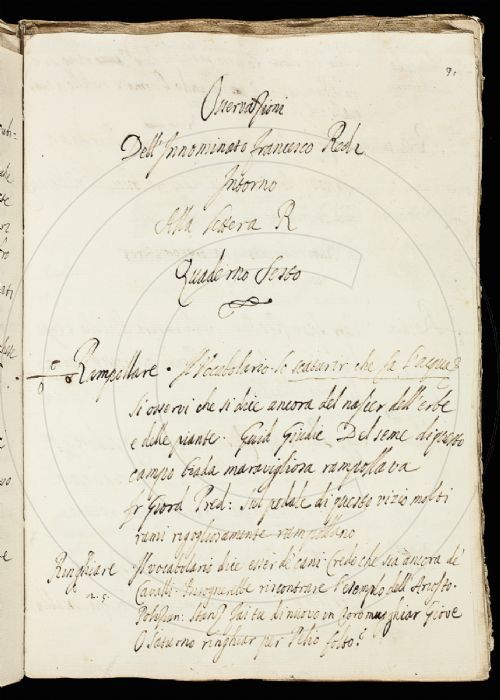 9.
Osservazioni
Dell'Innominato Francesco Redi
Intorno
Alla lettera R
Quaderno Sesto
Rampollare. Il Vocabolario. lo scaturir che fa l'acqua
Si osservi che si dice ancora del nascer dell'erbe
e delle piante. Guid Giudic Del seme di questo
campo biada maravigliosa rampollava
fr Giord Pred: Sul pedale di questo vizio molti
rami rigogliosamente rampollano
Ringhiare Il Vocabolario dice esser de' cani. Credo che sia ancora de'
n. s. Cavalli. Bisognerebbe riscontrare l'esemplo dell'Ariosto.
Polizian: Stanz fai tu di nuovo in Toro mugghiar Giove
O Saturno ringhiar per Pelio folto?